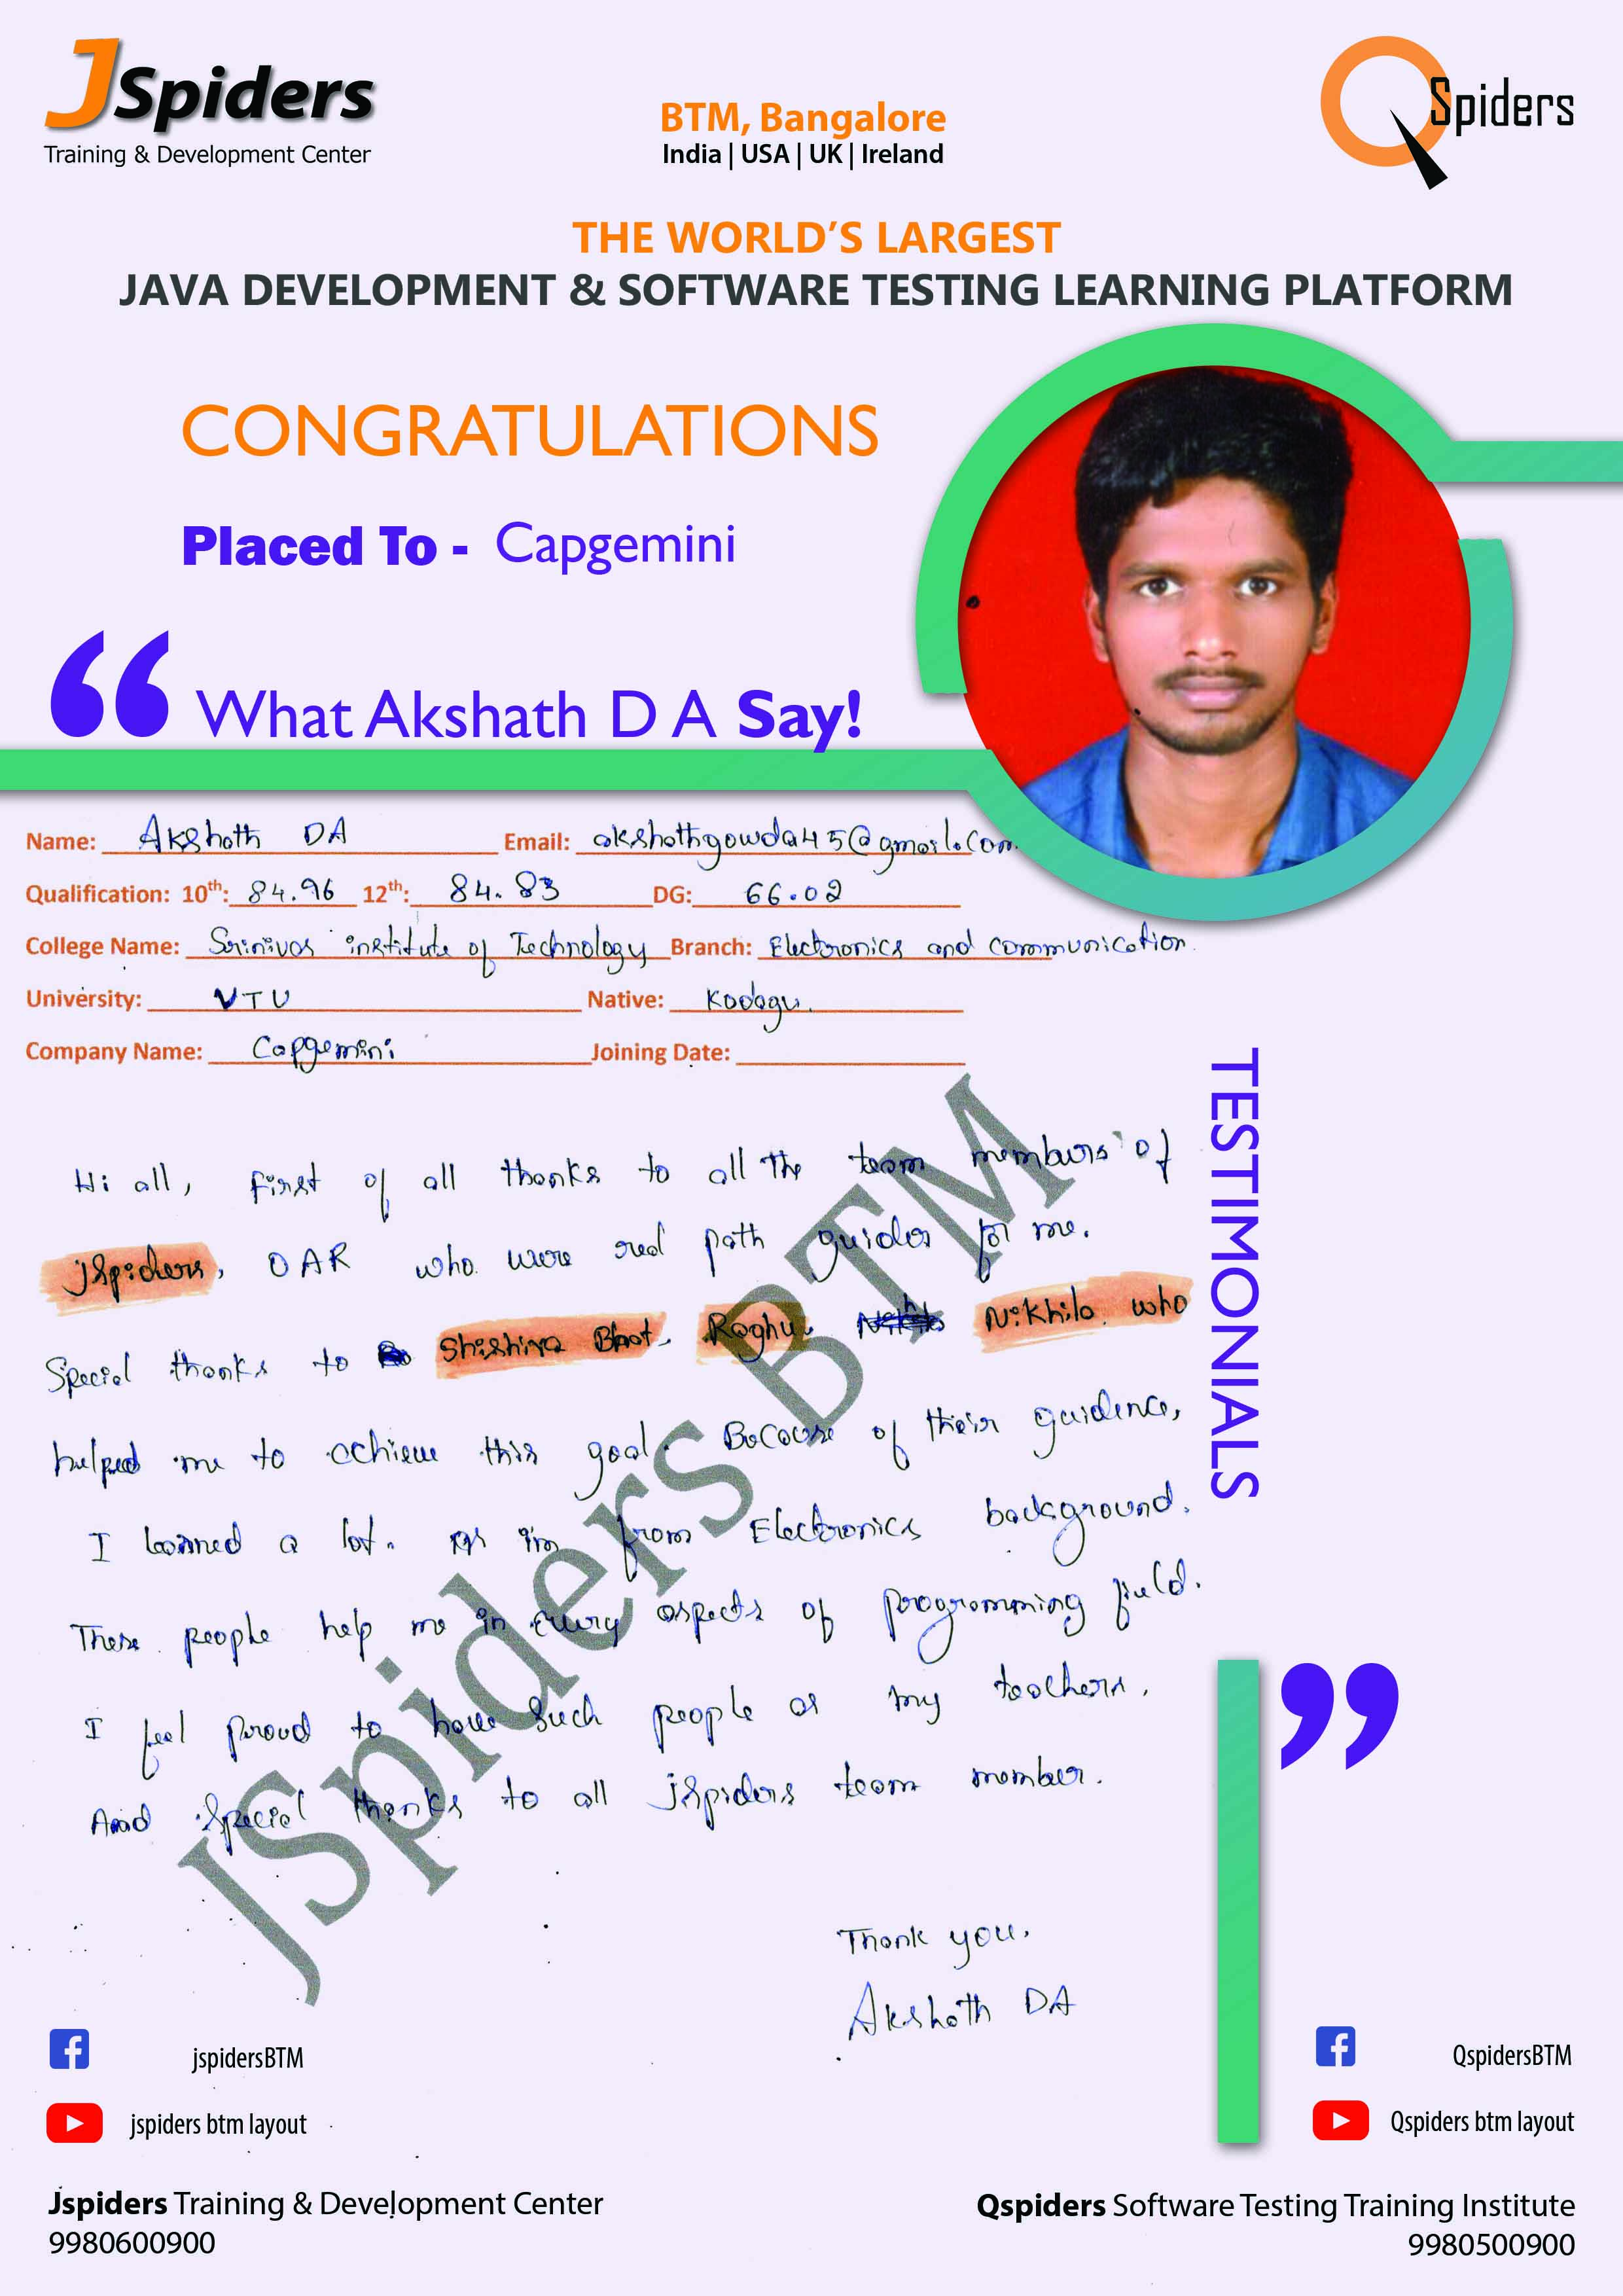 JSpiders
Training & Development Center
BTM, Bangalore
India | USA | UK | Ireland
QSpiders
THE WORLD'S LARGEST
JAVA DEVELOPMENT & SOFTWARE TESTING LEARNING PLATFORM
CONGRATULATIONS
Placed To - Capgemini
“ What Akshath D A Say!
Name: Akshath DA Email: akshathgowda45@gmail.com
Qualification: 10th: 84.96 12th: 84.83 DG: 66.02
College Name: Srinivas institute of Technology Branch: Electronics and communication
University: VTU Native: Kodagu.
Company Name: Capgemini Joining Date:
TESTIMONIALS
Hi all, first of all thanks to all the team members of
jspiders, OAR who were path guides for me.
Special thanks to Shishira Bhat, Raghu, Nikhila who
helped me to achieve this goal. Because of their guidence,
I learned a lot. As im from Electronics background.
These people help me in every aspects of programming field.
I feel proud to have such people as my teachers.
And special thanks to all jspiders team member.
Thank you,
Akshath DA
JSpiders BTM
”
jspidersBTM
QspidersBTM
jspiders btm layout
Qspiders btm layout
Jspiders Training & Development Center
9980600900
Qspiders Software Testing Training Institute
9980500900